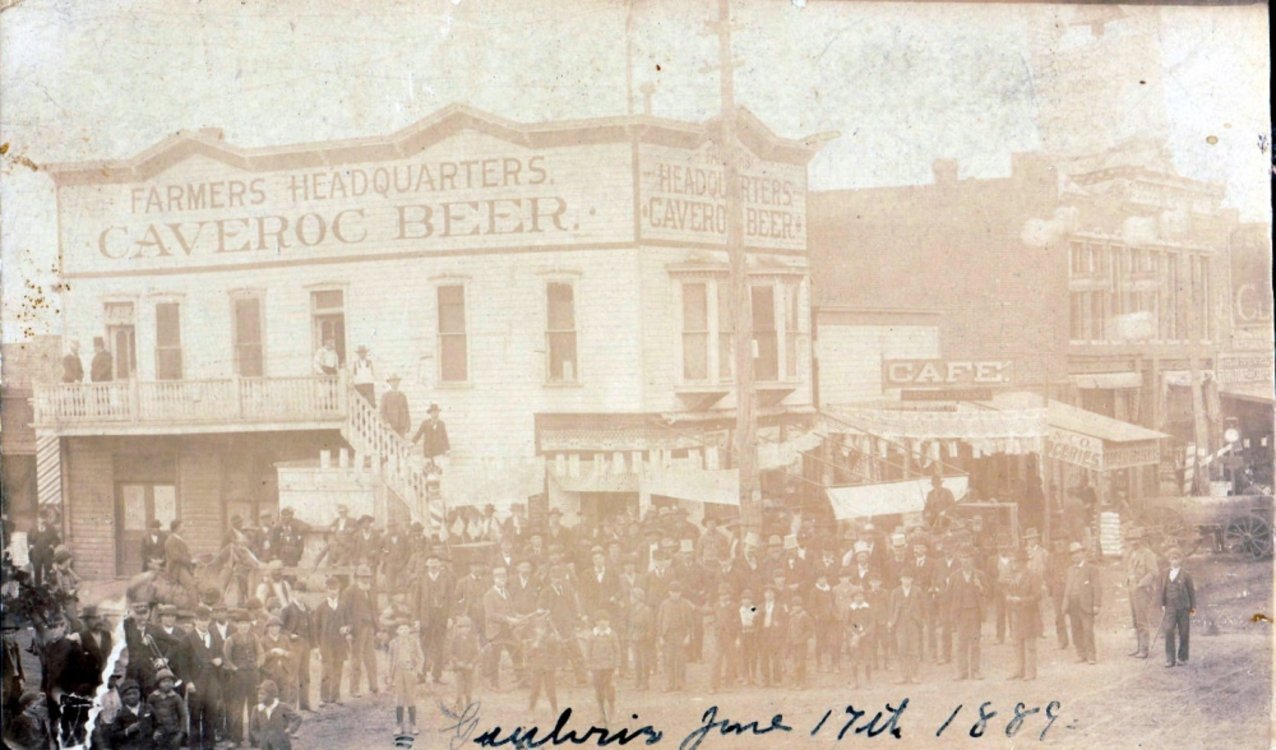 FARMERS HEADQUARTERS.
CAVEROC BEER.
HEADQUARTERS
CAVEROC BEER.
CAFE.
& CO.
June 17th 1889.